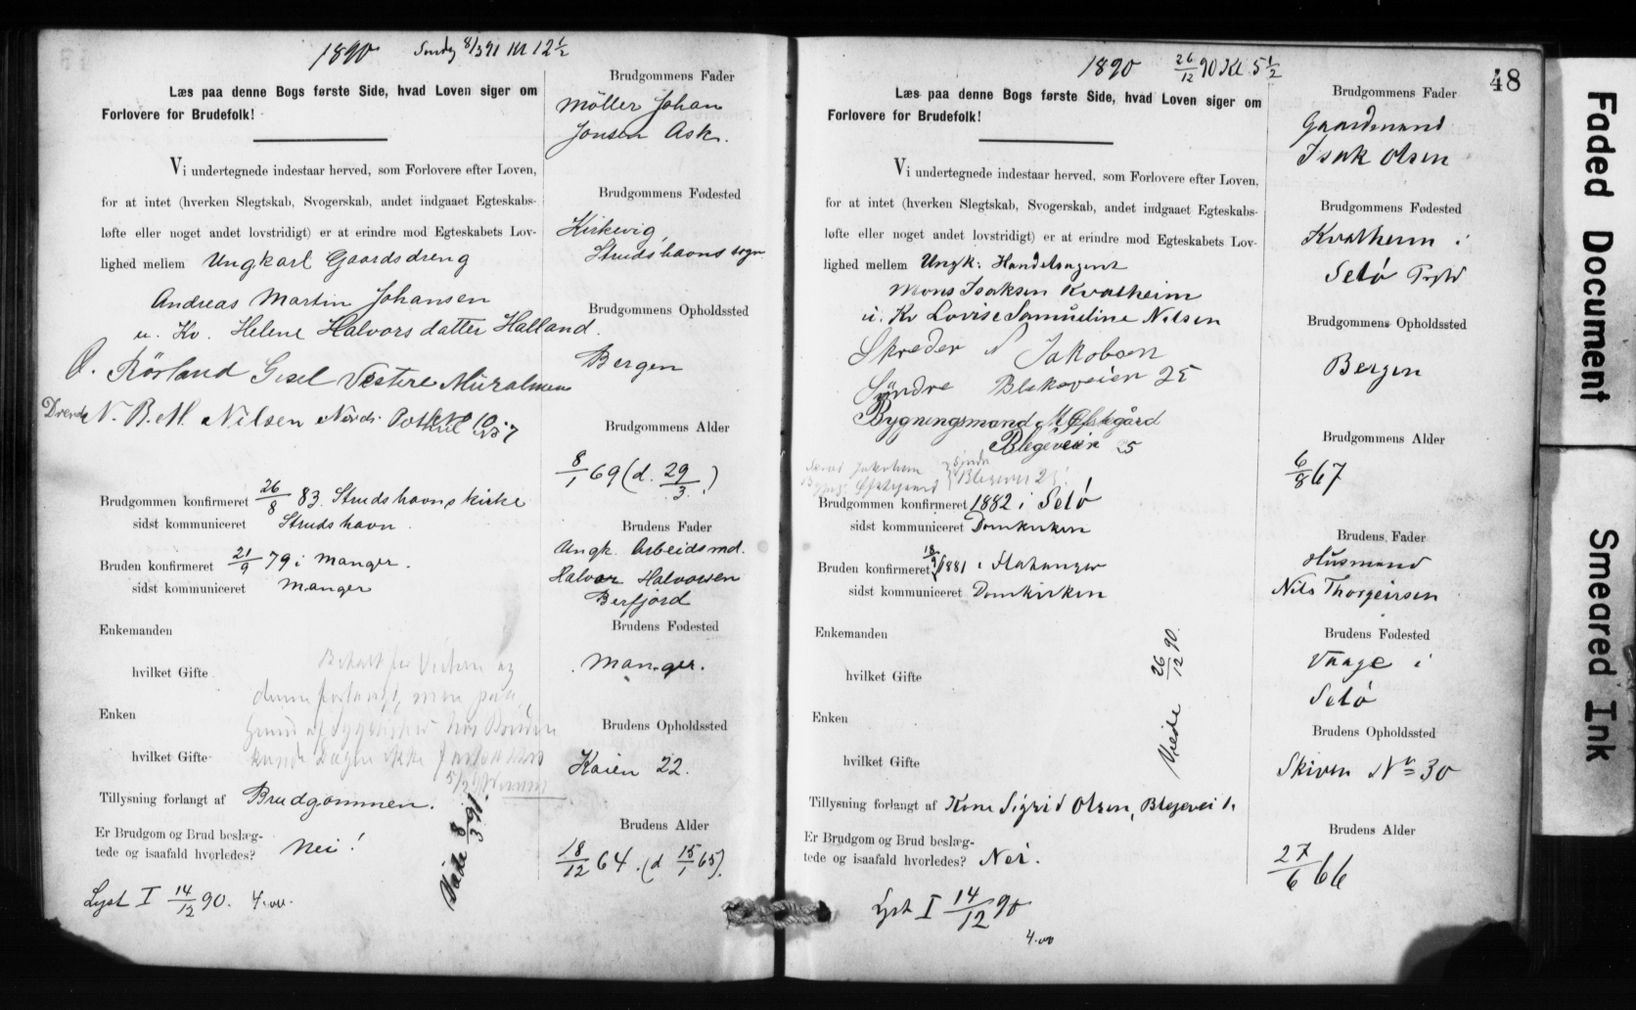 1890 Søndag 8/3 91 Kl 12 1/2
Læs paa denne Bogs første Side, hvad Loven siger om
Forlovere for Brudefolk!
Vi undertegnede indestaar herved, som Forlovere efter Loven,
for at intet (hverken Slegtskab, Svogerskab, andet indgaaet Egteskabs-
løfte eller noget andet lovstridigt) er at erindre mod Egteskabets Lov-
lighed mellem Ungkarl Gaardsdreng
Andreas Martin Johansen
u. Kv. Helene Halvorsdatter Halland.
O. Rörland Gesel Vestere Muralmen
N. B. M. Nilsen
Brudgommen konfirmeret 26/8 83. Strudshavns kirke
sidst kommuniceret Strudshavn.
Bruden konfirmeret 21/9 79 i Manger.
sidst kommuniceret Manger
Enkemanden
hvilket Gifte
Enken
hvilket Gifte
Tillysning forlangt af Brudgommen.
Er Brudgom og Brud beslæg-
tede og isaafald hvorledes? Nei!
Lyst I 14/12 90. 4.00.
Viede 8/3 91.
Brudgommens Fader
Möller Johan
Jonsen Ask.
Brudgommens Fødested
Kirkevig,
Strudshavns sogn
Brudgommens Opholdssted
Bergen
Brudgommens Alder
8/1 69 (d. 29/3.)
Brudens Fader
Ungk. Arbeidsmd.
Halvor Halvorsen
Berfjord
Brudens Fødested
Manger.
Brudens Opholdssted
Kaien 22.
Brudens Alder
18/12 64. (d 15/1 65).
1890 26/12 90 Kl 5 1/2
48
Læs paa denne Bogs første Side, hvad Loven siger om
Forlovere for Brudefolk!
Vi undertegnede indestaar herved, som Forlovere efter Loven,
for at intet (hverken Slegtskab, Svogerskab, andet indgaaet Egteskabs-
løfte eller noget andet lovstridigt) er at erindre mod Egteskabets Lov-
lighed mellem Ungk. Handelsagent
Mons Isaksen Kvalheim
u. Kv Lovise Samueline Nilsen
Skreder N Jakobsen
Söndre Blekeveien 25
Bygningsmand M Øfstegård
Blegeveien 25
Brudgommen konfirmeret 1882 i Selø
sidst kommuniceret Domkirken
Bruden konfirmeret 18/9 1881 i Stavanger
sidst kommuniceret Domkirken
Enkemanden
hvilket Gifte
Enken
hvilket Gifte
Viede 26/12 90.
Tillysning forlangt af Kone Sigrid Olsen, Blegevei 1.
Er Brudgom og Brud beslæg-
tede og isaafald hvorledes? Nei.
Lyst I 14/12 90
4.00
Brudgommens Fader
Gaardmand
Isak Olsen
Brudgommens Fødested
Kvalheim i
Selö Prgld
Brudgommens Opholdssted
Bergen
Brudgommens Alder
6/8 67
Brudens Fader
Husmand
Nils Thorgeirsen
Brudens Fødested
Vaage i
Selö
Brudens Opholdssted
Skiven No 30
Brudens Alder
27/6 66
Faded Document
Smeared Ink